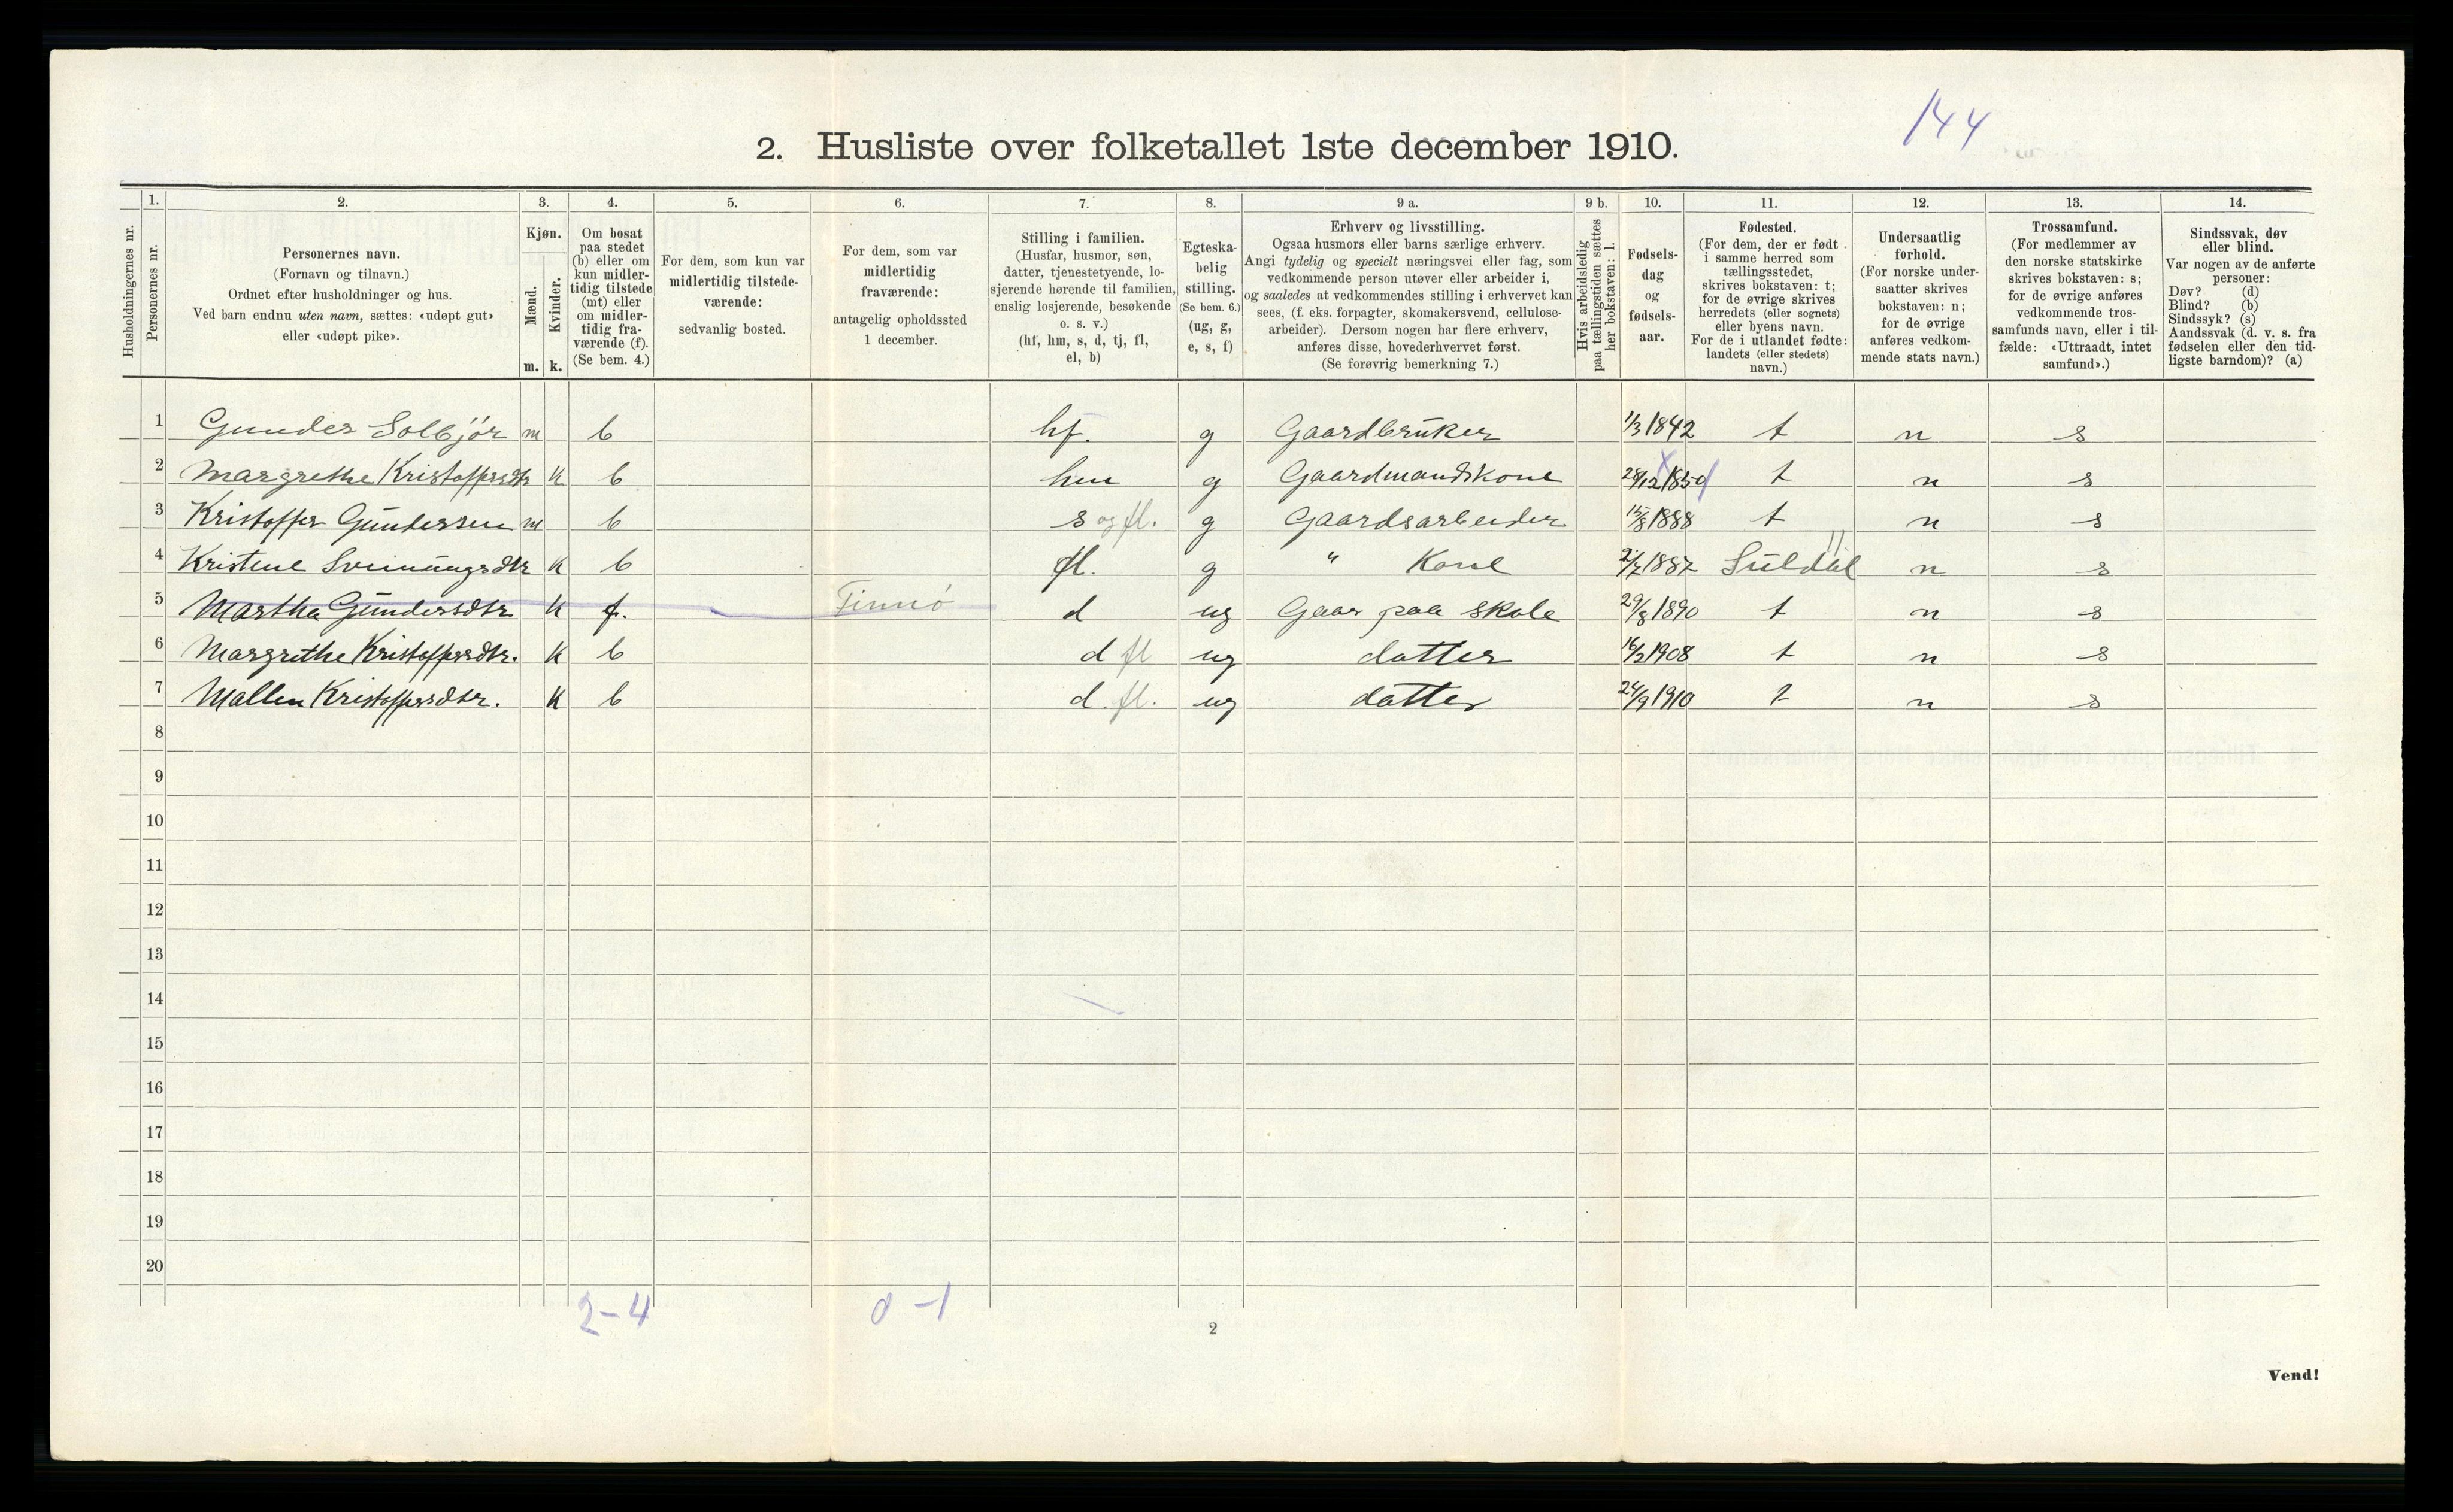 144
2. Husliste over folketallet 1ste december 1910.
Husholdningernes nr.
1. Personernes nr.
2. Personernes navn. (Fornavn og tilnavn.) Ordnet efter husholdninger og hus. Ved barn endnu uten navn, sættes: «udøpt gut» eller «udøpt pike».
3. Kjøn. Mænd. m. Kvinder. k.
4. Om bosat paa stedet (b) eller om kun midler-tidig tilstede (mt) eller om midler-tidig fra-værende (f). (Se bem. 4.)
5. For dem, som kun var midlertidig tilstede-værende: sedvanlig bosted.
6. For dem, som var midlertidig fraværende: antagelig opholdssted 1 december.
7. Stilling i familien. (Husfar, husmor, søn, datter, tjenestetyende, lo-sjerende hørende til familien, enslig losjerende, besøkende o. s. v.) (hf, hm, s, d, tj, fl, el, b)
8. Egteska-belig stilling. (Se bem. 6.) (ug, g, e, s, f)
9 a. Erhverv og livsstilling. Ogsaa husmors eller barns særlige erhverv. Angi tydelig og specielt næringsvei eller fag, som vedkommende person utøver eller arbeider i, og saaledes at vedkommendes stilling i erhvervet kan sees, (f. eks. forpagter, skomakersvend, cellulose-arbeider). Dersom nogen har flere erhverv, anføres disse, hovederhvervet først. (Se forøvrig bemerkning 7.)
9 b. Hvis arbeidsledig paa tællingstiden sættes her bokstaven: l.
10. Fødsels-dag og fødsels-aar.
11. Fødested. (For dem, der er født i samme herred som tællingsstedet, skrives bokstaven: t; for de øvrige skrives herredets (eller sognets) eller byens navn. For de i utlandet fødte: landets (eller stedets) navn.)
12. Undersaatlig forhold. (For norske under-saatter skrives bokstaven: n; for de øvrige anføres vedkom-mende stats navn.)
13. Trossamfund. (For medlemmer av den norske statskirke skrives bokstaven: s; for de øvrige anføres vedkommende tros-samfunds navn, eller i til-fælde: «Uttraadt, intet samfund».)
14. Sindssvak, døv eller blind. Var nogen av de anførte personer: Døv? (d) Blind? (b) Sindssyk? (s) Aandssvak (d. v. s. fra fødselen eller den tid-ligste barndom)? (a)
1 Gunder Solbjør m b hf. g Gaardbruker 1/3 1842 t n s
2 Margrethe Kristoffersdtr k b hm g Gaardmandskone 28/12 1850 t n s
3 Kristoffer Gundersen m b s og fl. g Gaardsarbeider 15/8 1888 t n s
4 Kristine Sveinungsdtr k b fl. g " Kone 1887 Suldal n s
5 Martha Gundersdtr k f. Finnø d ug Gaar paa skole 29/8 1890 t n s
6 Margrethe Kristoffersdtr. k b d fl ug datter 16/2 1908 t n s
7 Mallen Kristoffersdtr. k b d. fl. ug datter 24/9 1910 t n s
8
9
10
11
12
13
14
15
16
17
18
19
20
2-4 0-1
2
Vend!